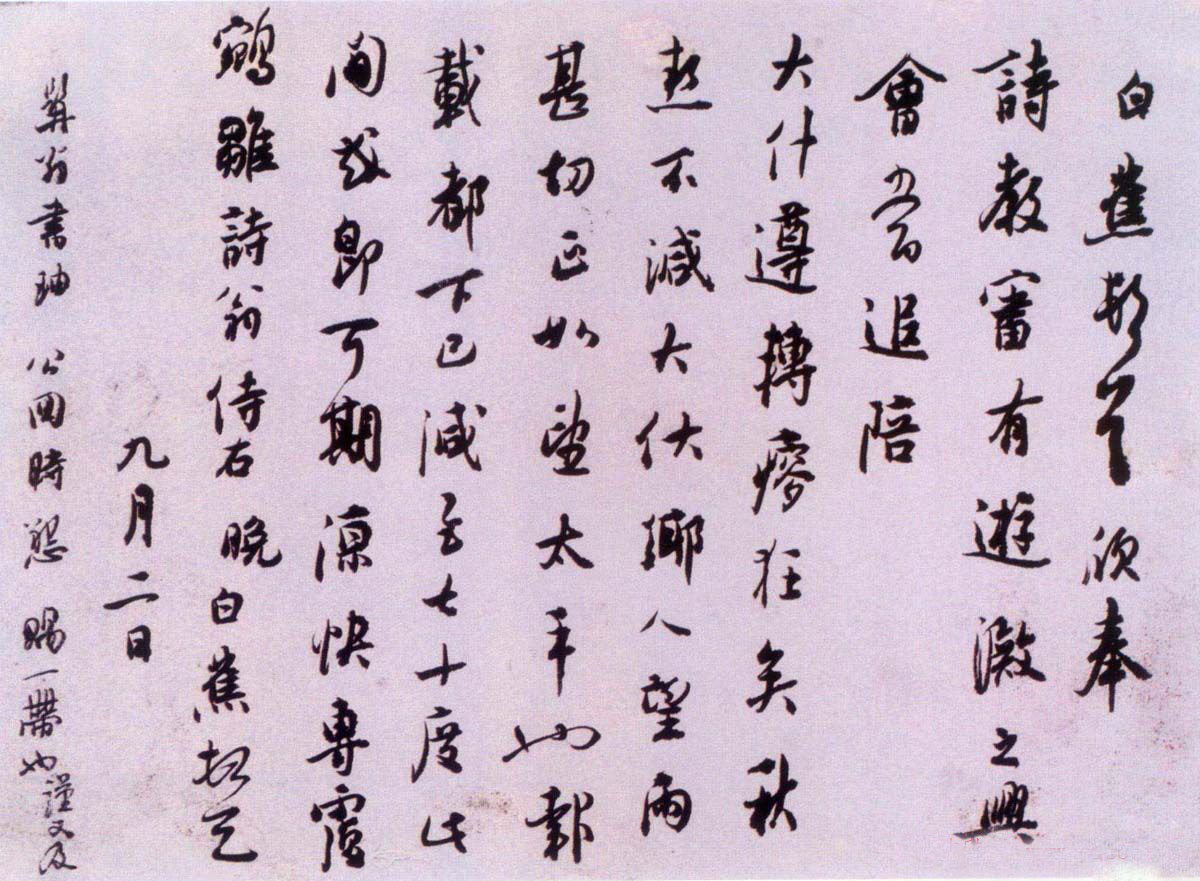 白蕉頓首欣奉
詩教審有遊澂之興
會當追陪
大什遵轉瘳狂矣秋
熱不減大伏鄉人望雨
甚切正如望太平也報
載都下已減至七十度此
間或即可期涼快專覆
鵷雛詩翁侍右 晚白蕉招三
九月二日
算翁書珈 公回時懇 賜一帶也謹又及